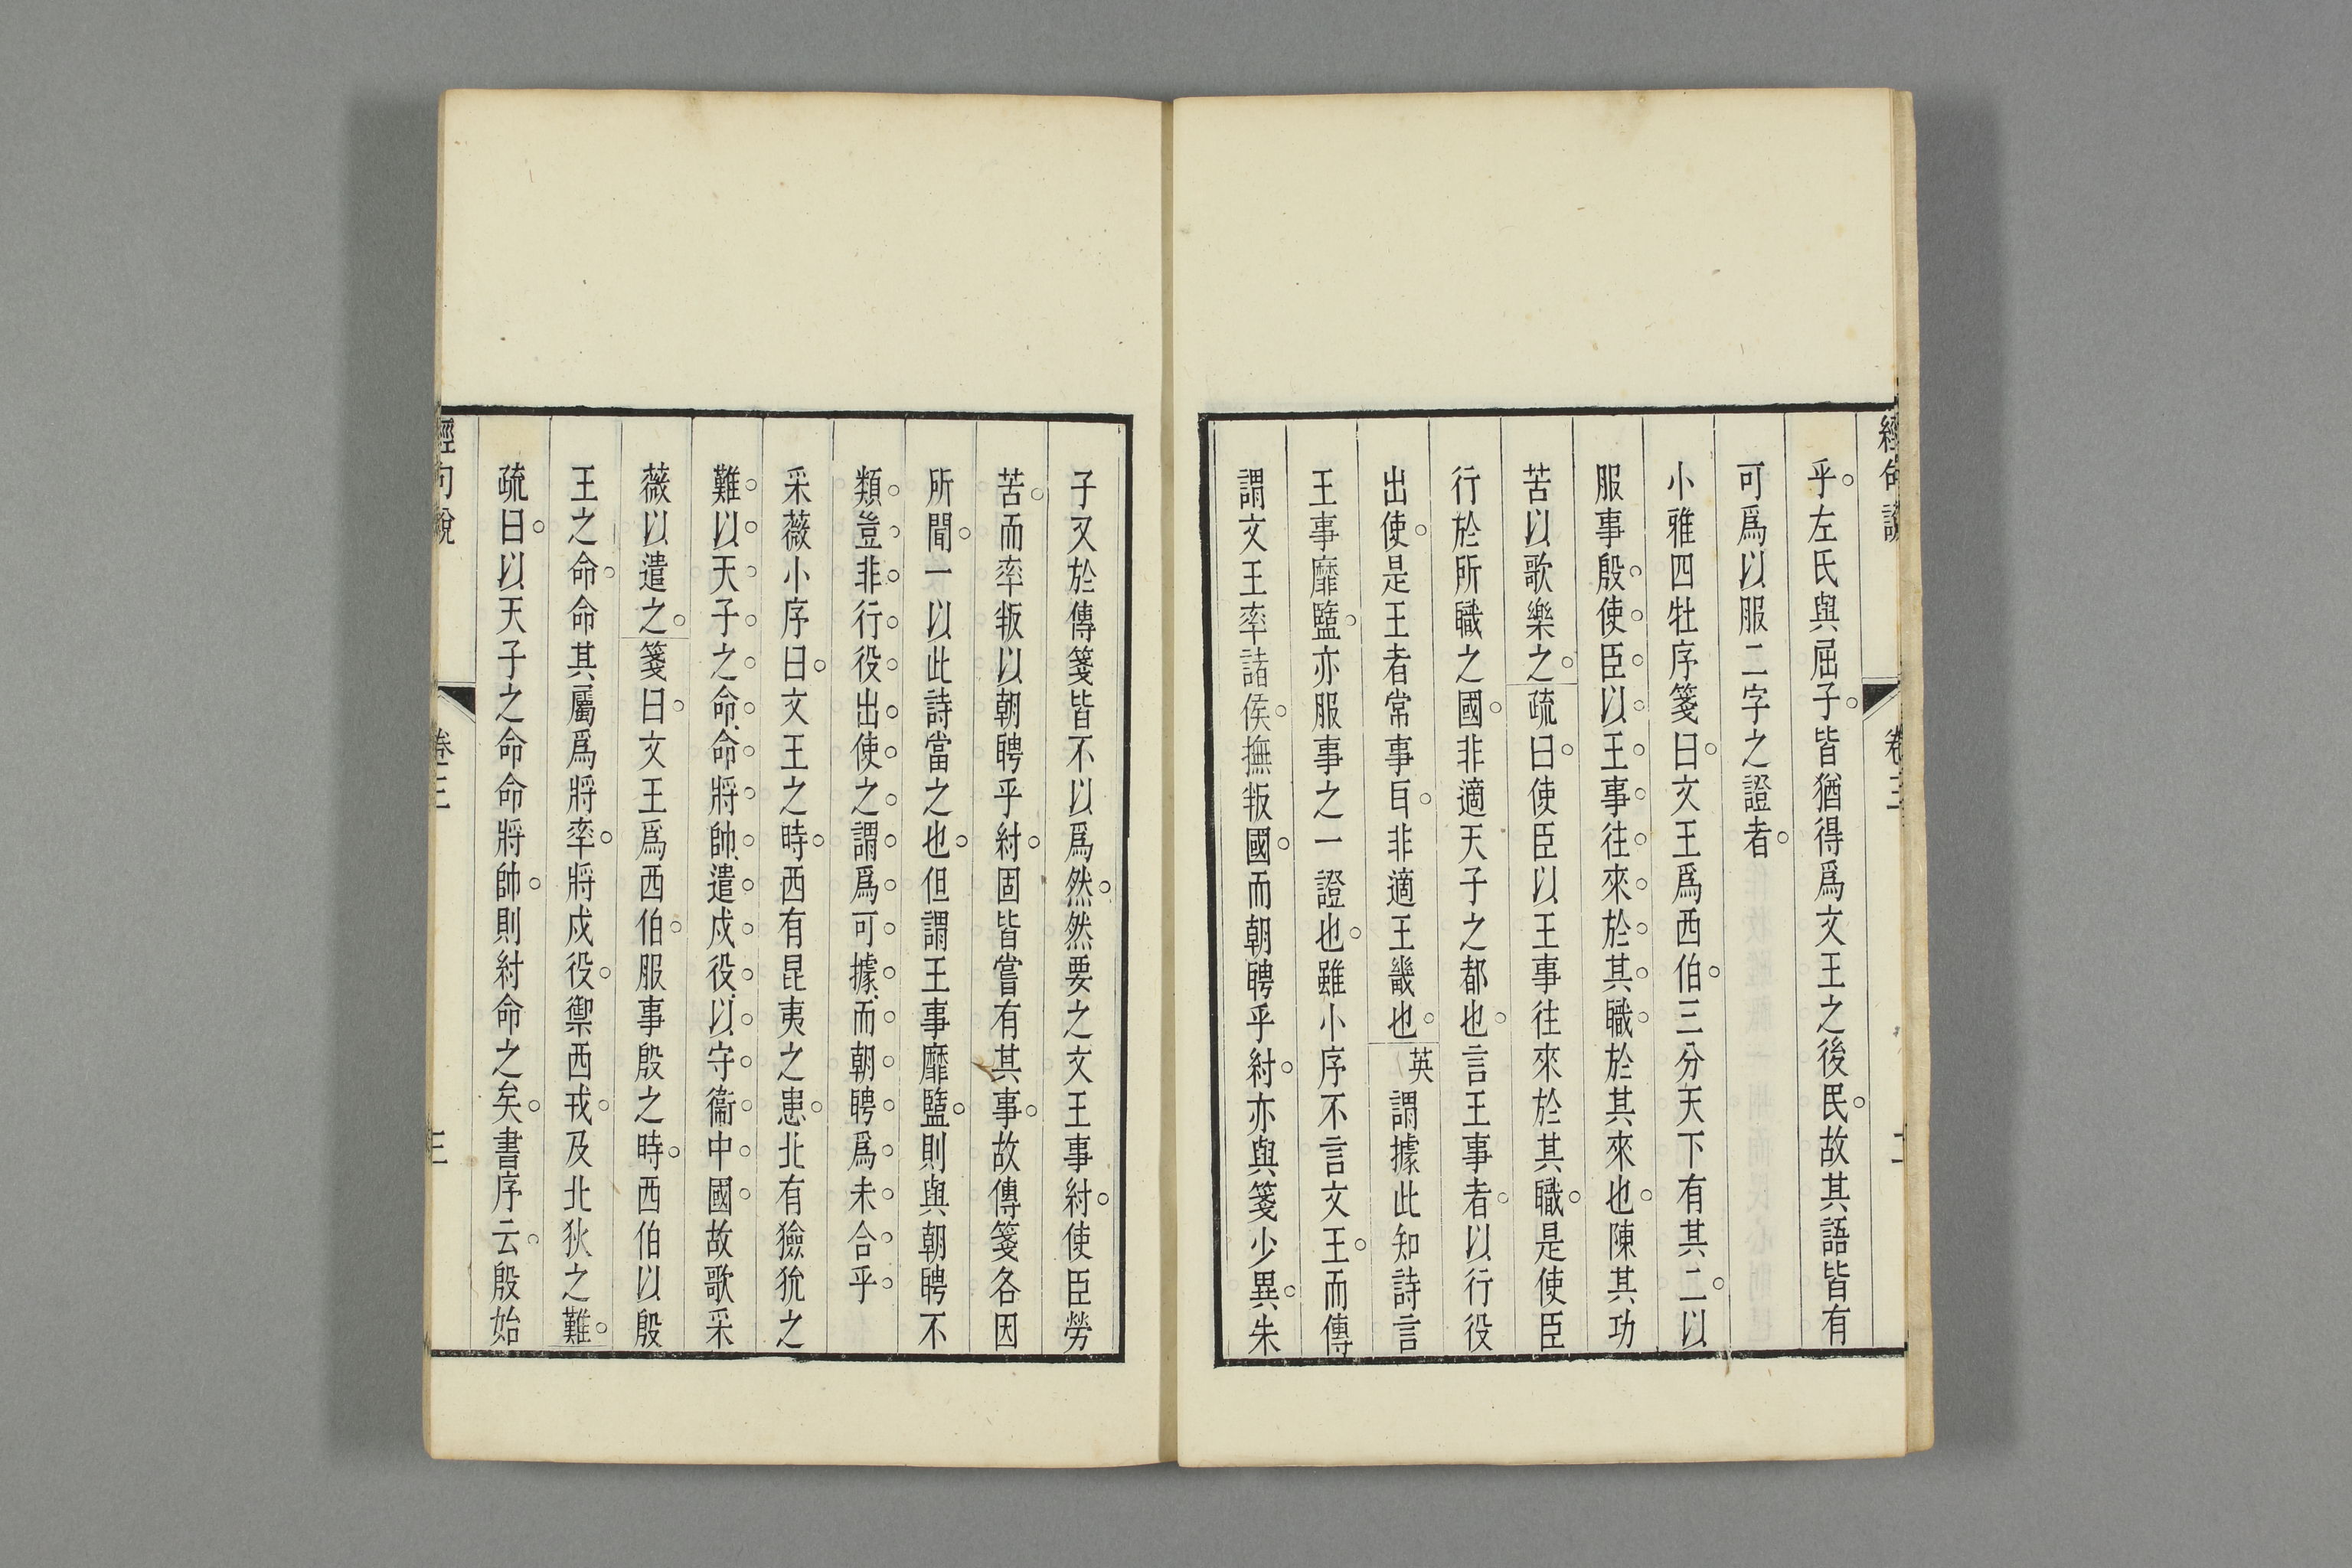 經句說
卷三
二
乎左氏與屈子皆猶得爲文王之後民故其語皆有
可爲以服二字之證者
小雅四牡序箋曰文王爲西伯三分天下有其二以
服事殷使臣以王事往來於其職於其來也陳其功
苦以歌樂之疏曰使臣以王事往來於其職是使臣
行於所職之國非適天子之都也言王事者以行役
出使是王者常事耳非適王畿也英謂據此知詩言
王事靡盬亦服事之一證也雖小序不言文王而傳
謂文王率諸侯撫叛國而朝聘乎紂亦與箋少異朱
子又於傳箋皆不以爲然然要之文王事紂使臣勞
苦而率叛以朝聘乎紂固皆嘗有其事故傳箋各因
所聞一以此詩當之也但謂王事靡盬則與朝聘不
類豈非行役出使之謂爲可據而朝聘爲未合乎
采薇小序曰文王之時西有昆夷之患北有獫狁之
難以天子之命命將帥遣戍役以守衞中國故歌采
薇以遣之箋曰文王爲西伯服事殷之時西伯以殷
王之命命其屬爲將率將戍役禦西戎及北狄之難
疏曰以天子之命命將帥則紂命之矣書序云殷始
經句說
卷三
三